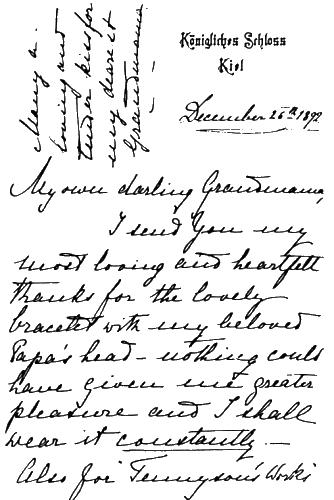 Königliches Schloss
Kiel
December 26th 1892
My own darling Grandmama,
I send You my
most loving and heartfelt
thanks for the lovely
bracelet with my beloved
Papa's head – nothing could
have given me greater
pleasure and I shall
wear it constantly –
Also for Tennyson's Works
Many a
loving and
tender kiss for
my dearest
Grandmama –